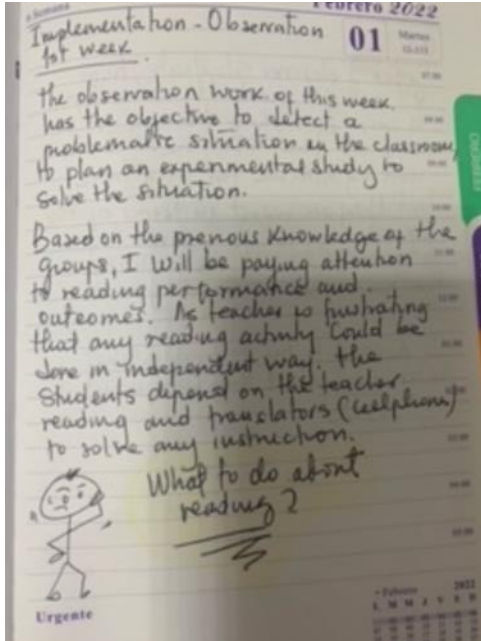 Febrero 2022
Implementation - Observation
1st week.
01 Martes
the observation work of this week.
has the objective to detect a
problematic situation in the classroom,
to plan an experimental study to
solve the situation.
Based on the previous knowledge of the
groups, I will be paying attention
to reading performance and
outcomes. As teacher is frustrating
that any reading activity could be
done in independent way. the
students depend on the teacher
reading and translators (cellphone)
to solve any instruction.
What to do about
reading?
Urgente
Febrero 2022
L M M J V S D